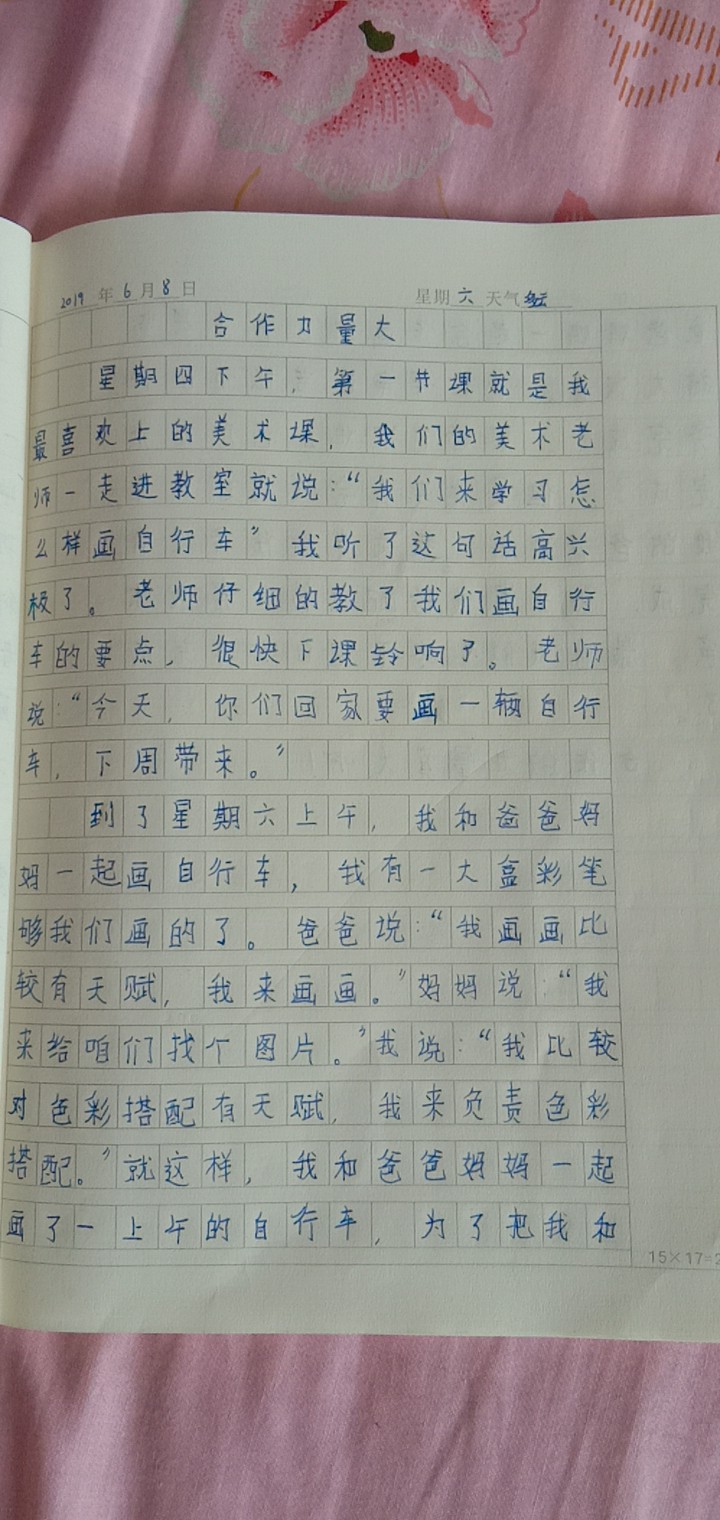 2019年6月8日 星期六 天气多云
合作力量大
星期四下午，第一节课就是我
最喜欢上的美术课，我们的美术老
师一走进教室就说：“我们来学习怎
么样画自行车”我听了这句话高兴
极了。老师仔细的教了我们画自行
车的要点，很快下课铃响了。老师
说：“今天，你们回家要画一辆自行
车，下周带来。”
到了星期六上午，我和爸爸妈
妈一起画自行车，我有一大盒彩笔
够我们画的了。爸爸说：“我画画比
较有天赋，我来画画。”妈妈说：“我
来给咱们找个图片。”我说：“我比较
对色彩搭配有天赋，我来负责色彩
搭配。”就这样，我和爸爸妈妈一起
画了一上午的自行车，为了把我和
15×17=2